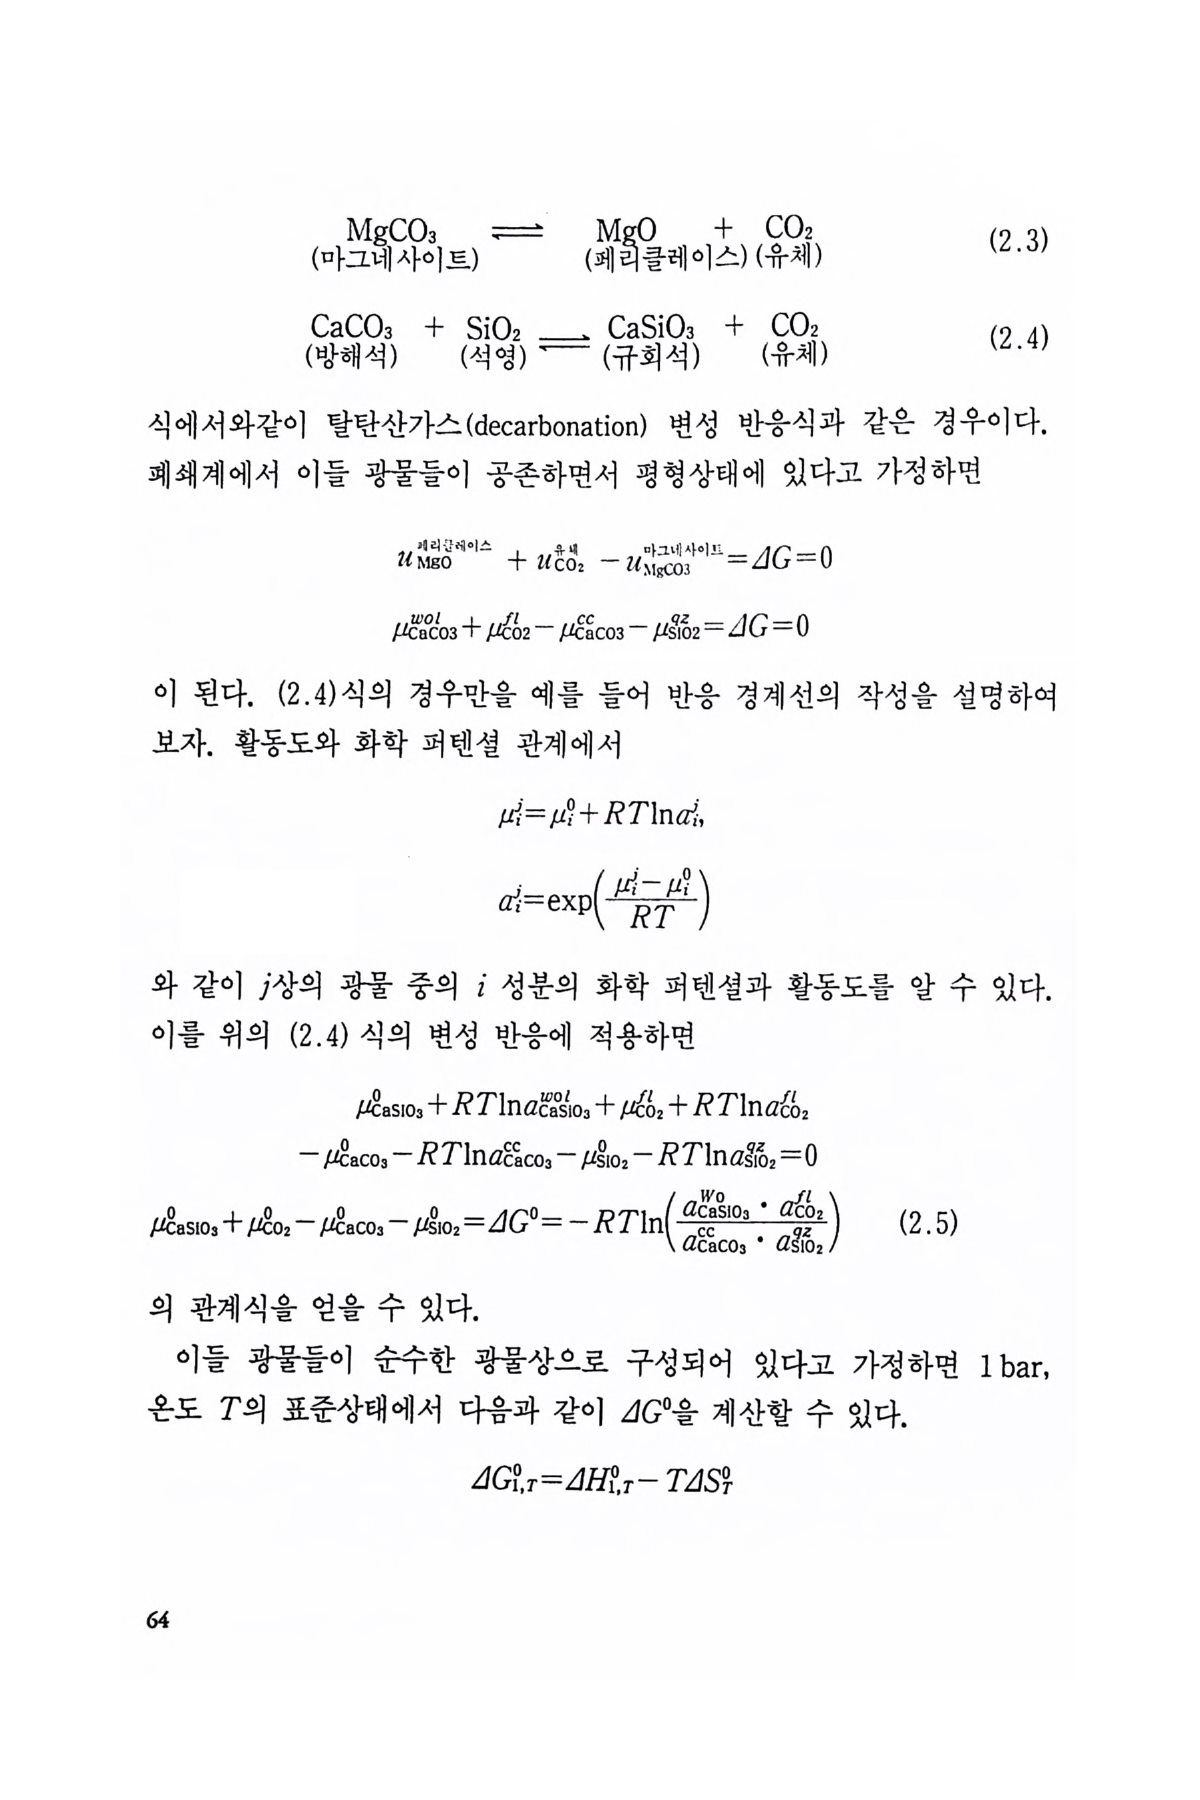 MgCO₃ ⇌ MgO + CO₂ (2.3)
(마그네사이트) (페리클레이스) (유체)
CaCO₃ + SiO₂ ⇌ CaSiO₃ + CO₂ (2.4)
(방해석) (석영) (규회석) (유체)
식에서와같이 탈탄산가스(decarbonation) 변성 반응식과 같은 경우이다.
폐쇄계에서 이들 광물들이 공존하면서 평형상태에 있다고 가정하면
u_{MgO}^{페리클레이스} + u_{CO₂}^{유체} − u_{MgCO3}^{마그네사이트} = ΔG = 0
μ_{CaCO3}^{wol} + μ_{CO2}^{fl} − μ_{CaCO3}^{cc} − μ_{SiO2}^{qz} = ΔG = 0
이 된다. (2.4)식의 경우만을 예를 들어 반응 경계선의 작성을 설명하여
보자. 활동도와 화학 퍼텐셜 관계에서
μ_i^j = μ_i^0 + RTlna_i^j,
a_i^j = exp((μ_i^j − μ_i^0)/RT)
와 같이 j상의 광물 중의 i 성분의 화학 퍼텐셜과 활동도를 알 수 있다.
이를 위의 (2.4) 식의 변성 반응에 적용하면
μ_{CaSiO₃}^0 + RTlna_{CaSiO₃}^{wol} + μ_{CO₂}^{fl} + RTlna_{CO₂}^{fl}
− μ_{CaCO₃}^0 − RTlna_{CaCO₃}^{cc} − μ_{SiO₂}^0 − RTlna_{SiO₂}^{qz} = 0
μ_{CaSiO₃}^0 + μ_{CO₂}^0 − μ_{CaCO₃}^0 − μ_{SiO₂}^0 = ΔG⁰ = −RTln((a_{CaSiO₃}^{Wo} · a_{CO₂}^{fl})/(a_{CaCO₃}^{cc} · a_{SiO₂}^{qz})) (2.5)
의 관계식을 얻을 수 있다.
이들 광물들이 순수한 광물상으로 구성되어 있다고 가정하면 1 bar,
온도 T의 표준상태에서 다음과 같이 ΔG⁰을 계산할 수 있다.
ΔG_{1,T}^0 = ΔH_{1,T}^0 − TΔS_T^0
64